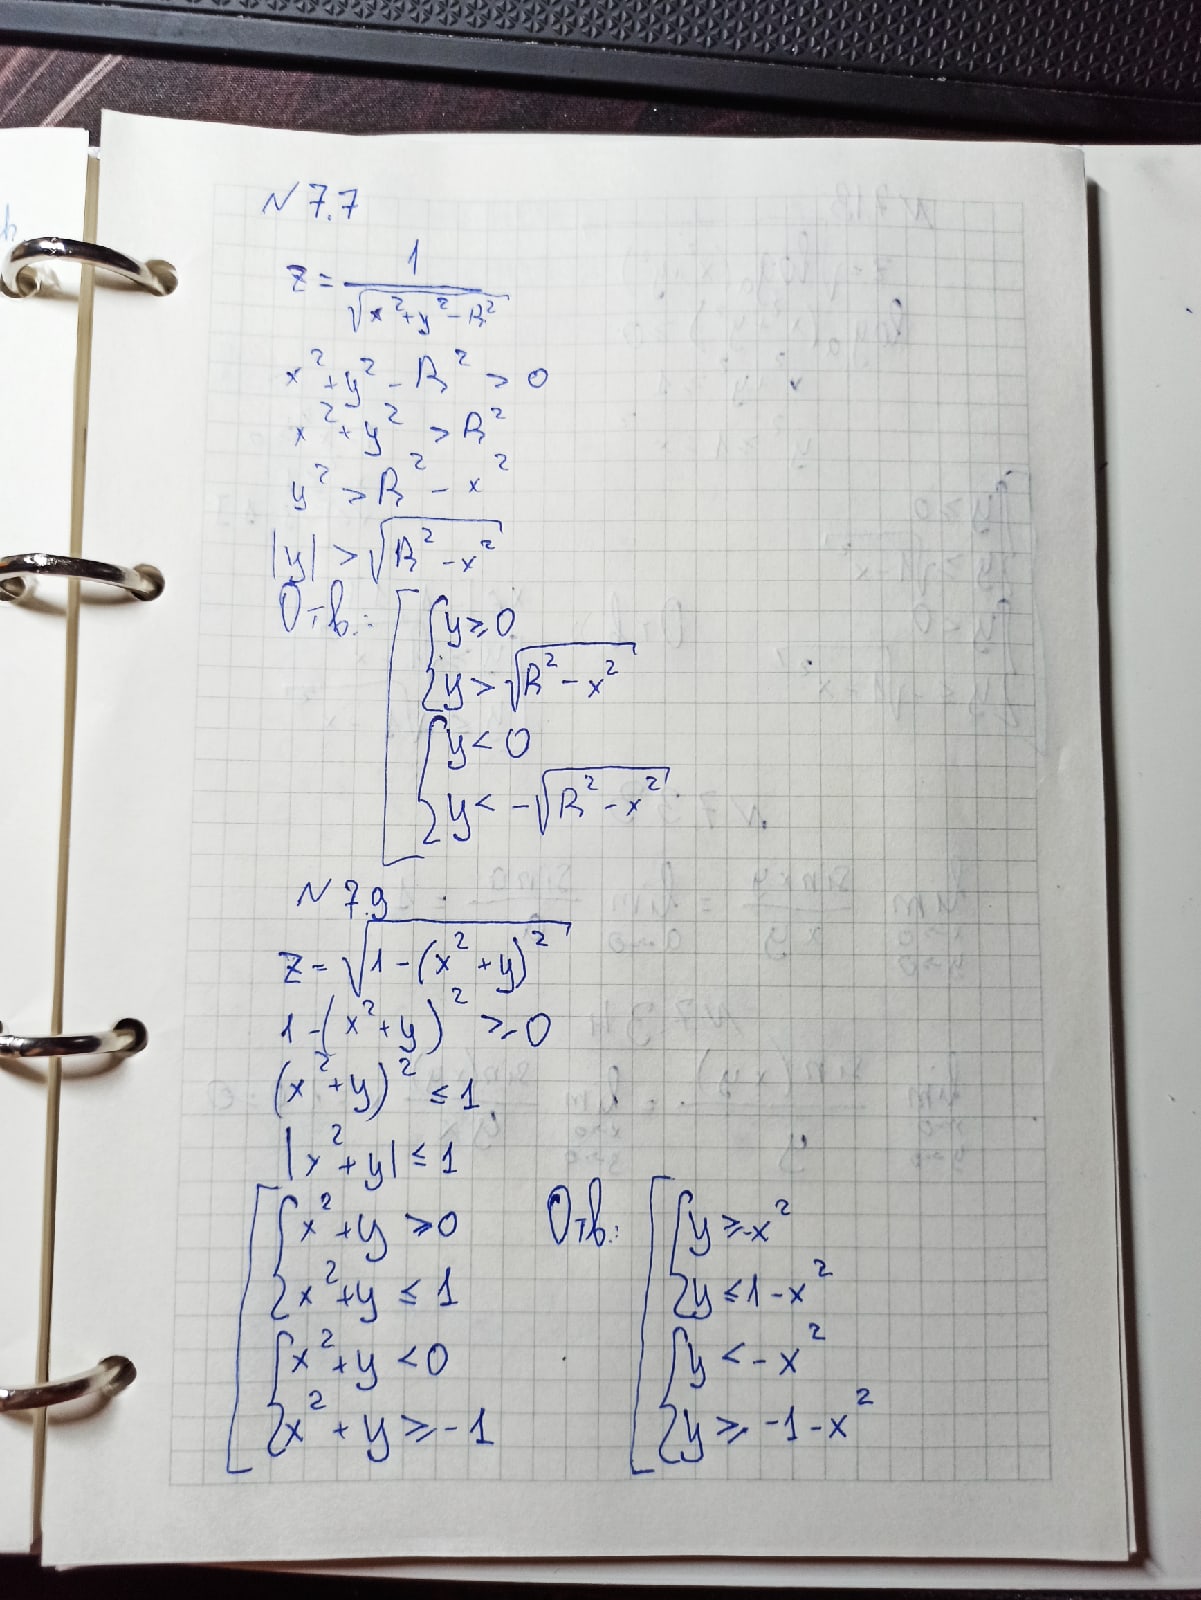 N 7.7
z = 1/√(x²+y²-R²)
x²+y²-R² > 0
x²+y² > R²
y² > R² - x²
|y| > √(R²-x²)
Отв.: [ { y ≥ 0
y > √(R²-x²)
{ y < 0
y < -√(R²-x²)
N 7.9
z = √(1-(x²+y)²)
1-(x²+y)² ≥ 0
(x²+y)² ≤ 1
|x²+y| ≤ 1
[ { x²+y ≥ 0
x²+y ≤ 1
{ x²+y < 0
x²+y ≥ -1
Отв.: [ { y ≥ -x²
y ≤ 1-x²
{ y < -x²
y ≥ -1-x²